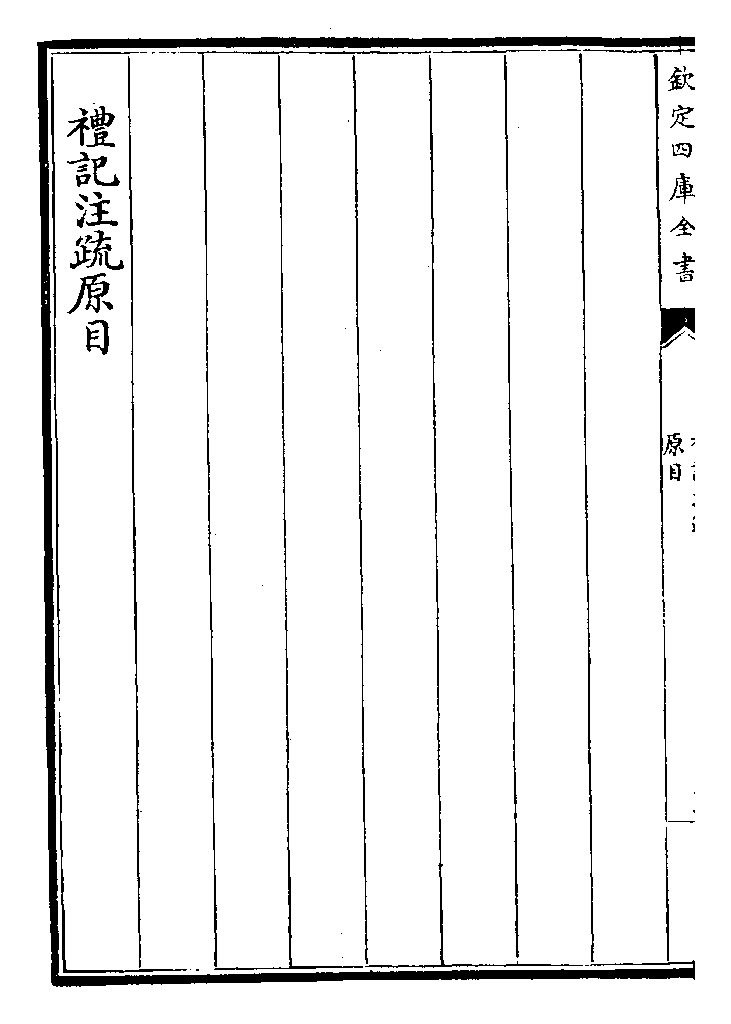 欽定四庫全書
原目
禮記注䟽原目